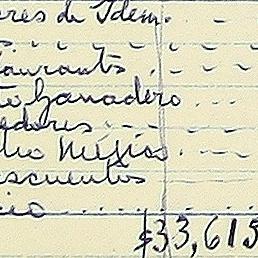 res de Idem. - -
aurants . - - -
to Ganadero ...
edores - - -
lio México . - -
escuentos
cio ..........
$33,615